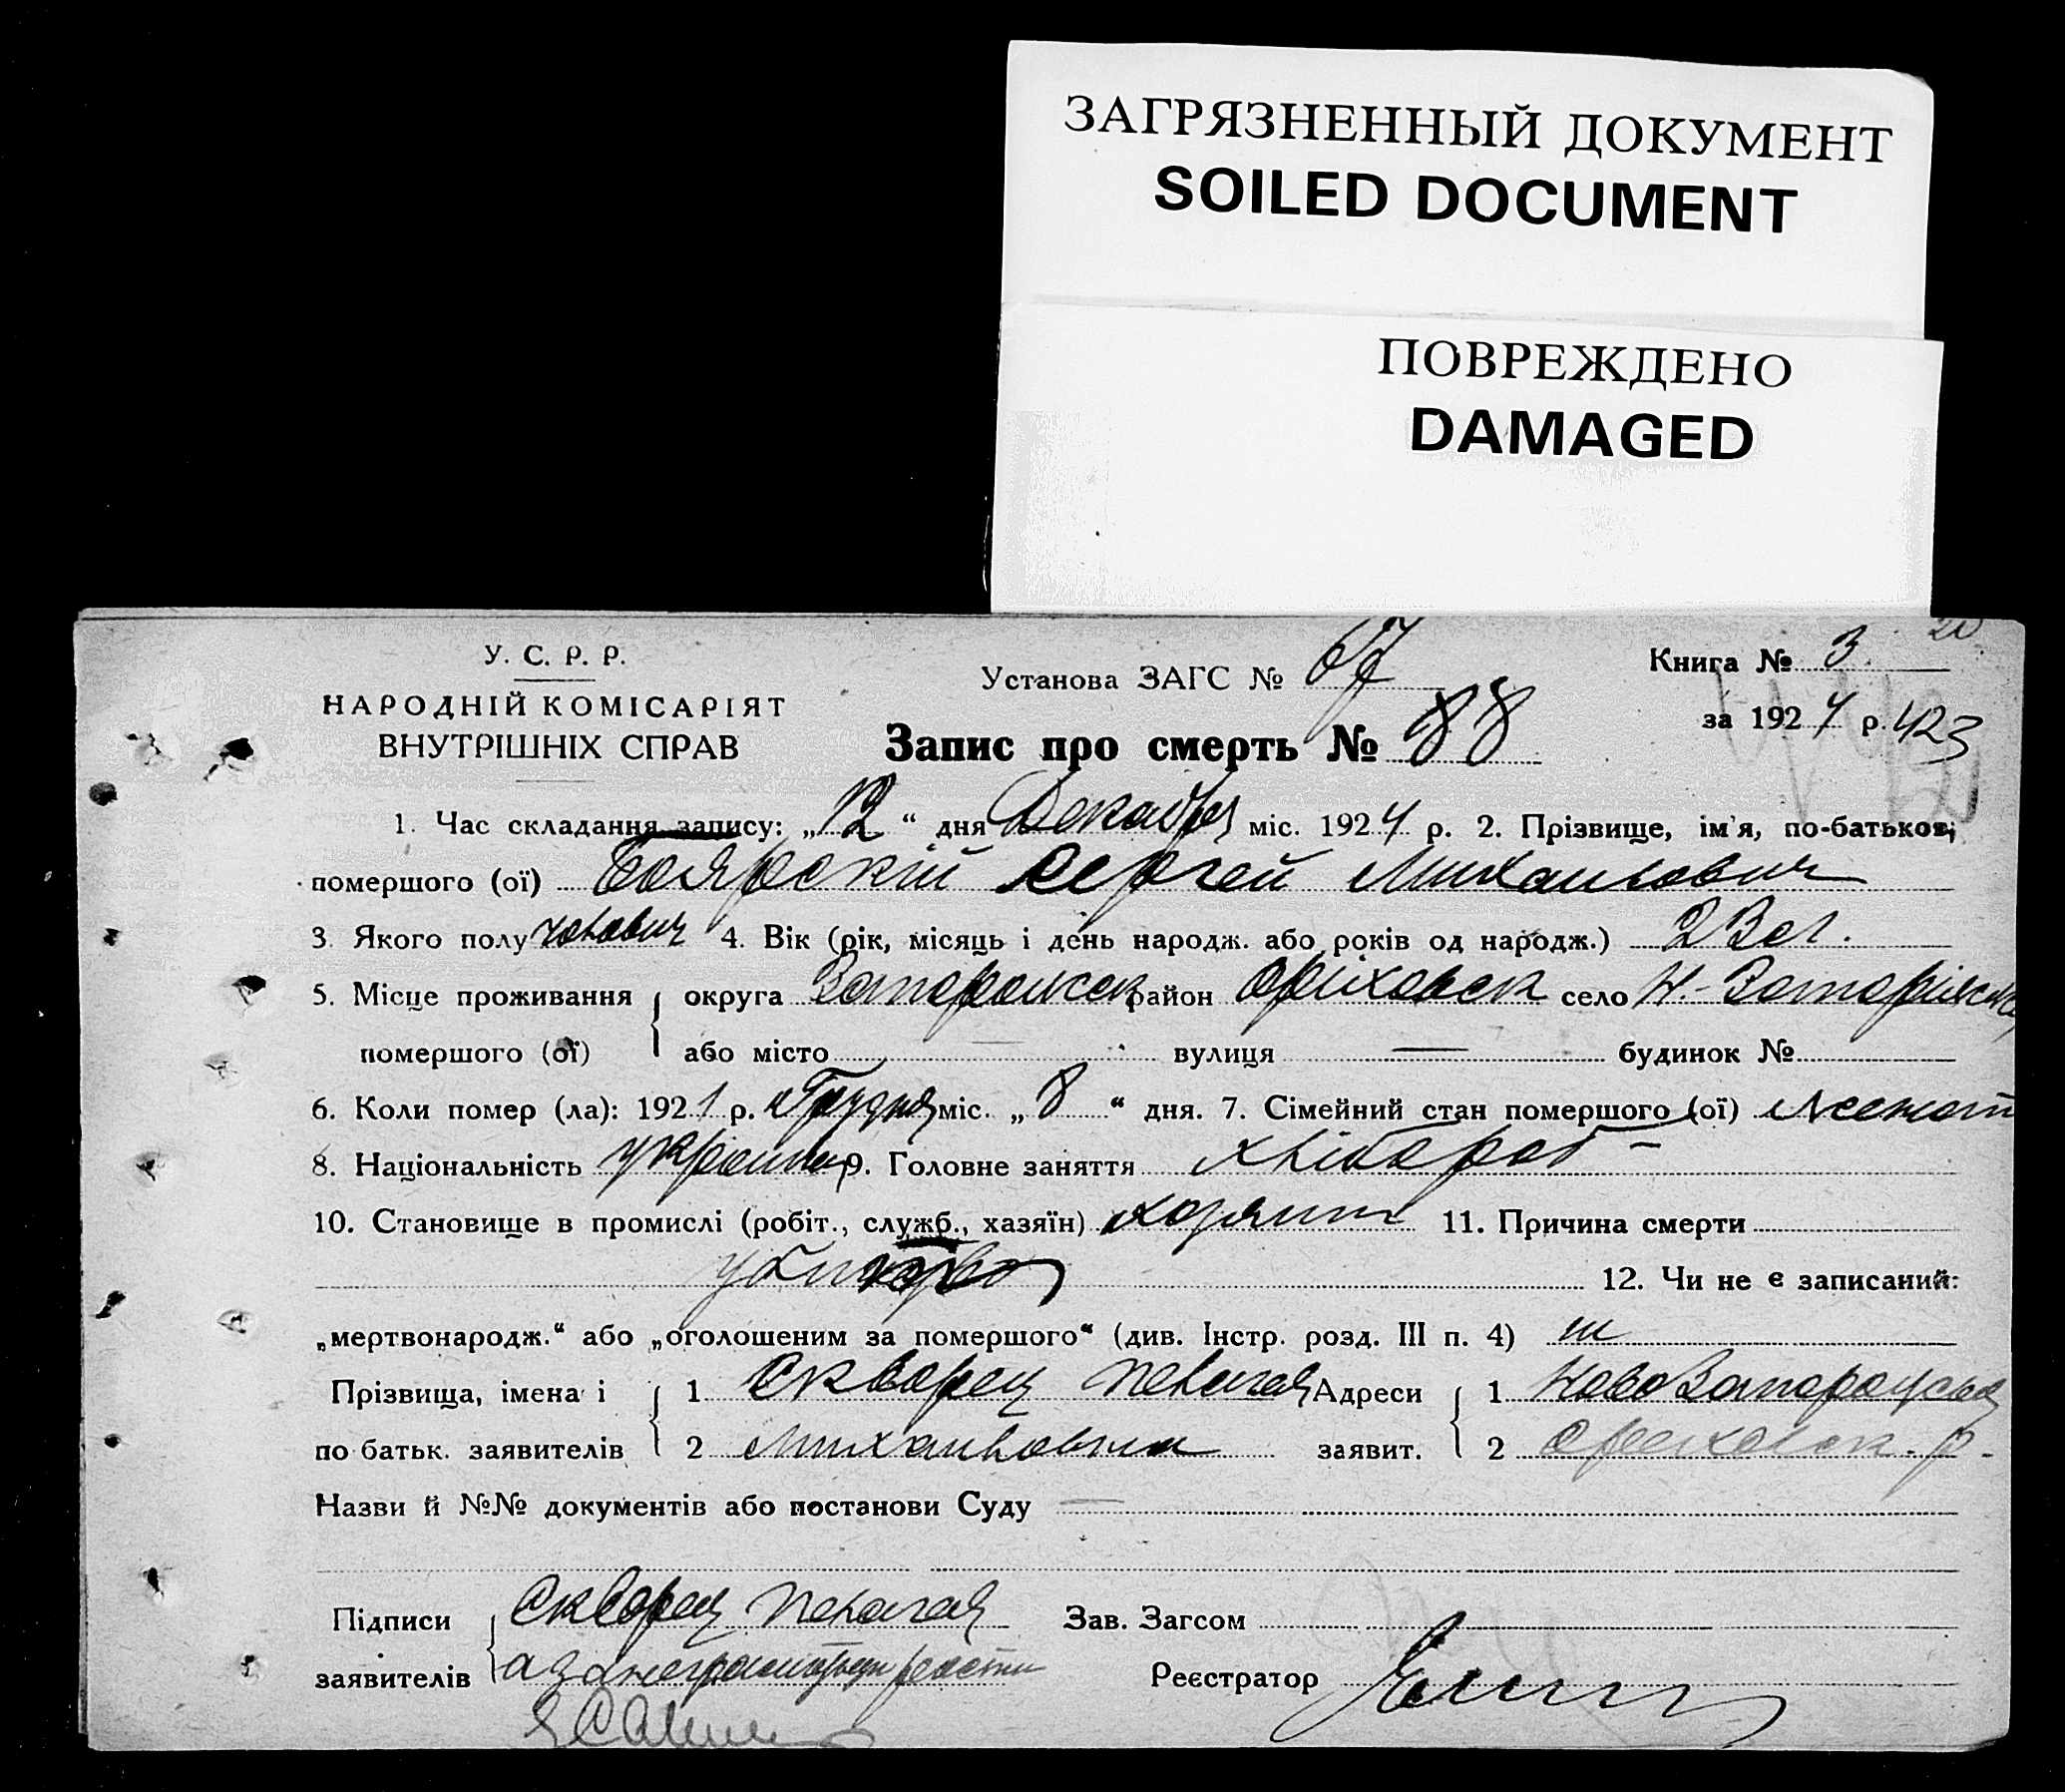 ЗАГРЯЗНЕННЫЙ ДОКУМЕНТ
SOILED DOCUMENT
ПОВРЕЖДЕНО
DAMAGED
20
У. С. Р. Р.
НАРОДНІЙ КОМІСАРІЯТ
ВНУТРІШНІХ СПРАВ
Установа ЗАГС № 67
Книга № 3
за 1924 р. 423
Запис про смерть № 88
1. Час складання запису: „12“ дня Декабря міс. 1924 р. 2. Прізвище, ім'я, по-батькові
помершого (ої) Боярскій Сергей Михайлович
3. Якого полу чоловіч 4. Вік (рік, місяць і день народж. або років од народж.) 23 л.
5. Місце проживання округа Запорожск район Оріховск село Н.-Запоріжск
помершого (ої) або місто — вулиця — будинок №
6. Коли помер (ла): 1921 р. Грудня міс. „8“ дня. 7. Сімейний стан помершого (ої)
8. Національність україн 9. Головне заняття хлібороб
10. Становище в промислі (робіт., служб., хазяїн) хозяин 11. Причина смерти
12. Чи не є записаний:
„мертвонародж.“ або „оголошеним за помершого“ (див. Інстр. розд. III п. 4)
Прізвища, імена і 1 Скворец Пелагея Адреси 1 Ново Запорожская
по батьк. заявителів 2 Михайловна заявит. 2 Ореховск. р.
Назви й №№ документів або постанови Суду —
Підписи Скворец Пелагея Зав. Загсом
заявителів а за неграмотную Реєстратор